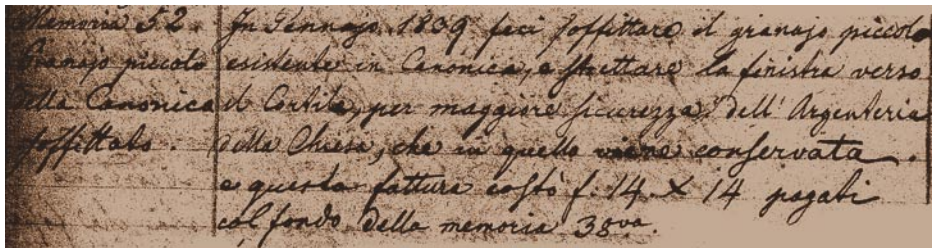 Memoria 52
Granajo piccolo
della Canonica
soffittato.
In Gennajo 1839 feci soffittare il granajo piccolo
esistente in Canonica, e strettare la finistra verso
il Cortile, per maggiore sicurezza dell' Argenteria
della Chiesa, che in quello viene conservata.
e questa fattura costò f. 14 X 14 pagati
col fondo della memoria 38va.